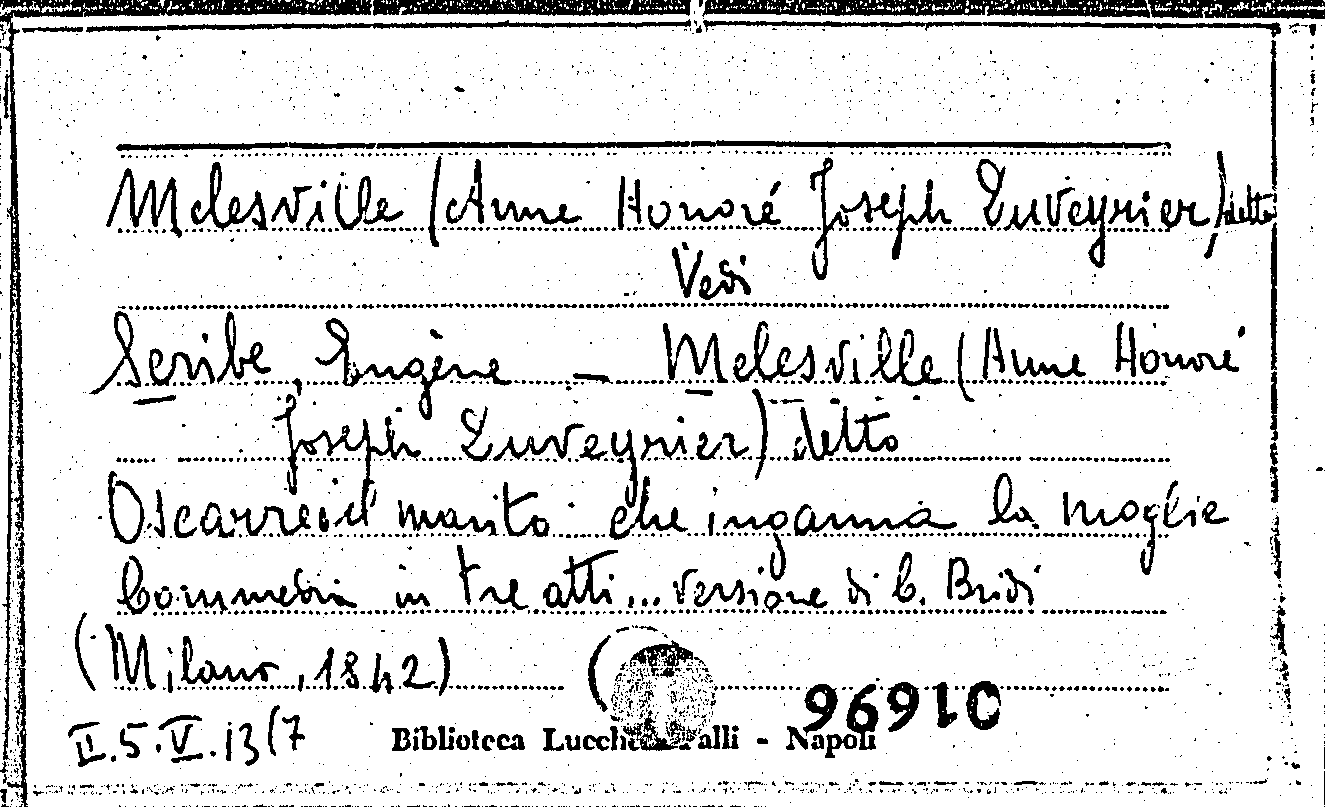 Melesville (Anne Honoré Joseph Duveyrier) detto
Vedi
Scribe, Eugène - Melesville (Anne Honoré
Joseph Duveyrier) detto
Oscarre o il marito che inganna la moglie
Commedia in tre atti... versione di C. Bridi
(Milano, 1842) (
96910
II.5.V.13(7 Biblioteca Lucchesi Palli - Napoli